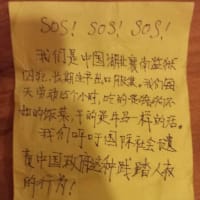 SOS! SOS! SOS!
我们是中国湖北襄南监狱
囚犯，长期生产出口服装。我们每
天劳动15个小时，吃的是
的饭菜，干的是牛马一样的活。
我们呼吁国际社会谴
责中国政府这种践踏人权
的行为！